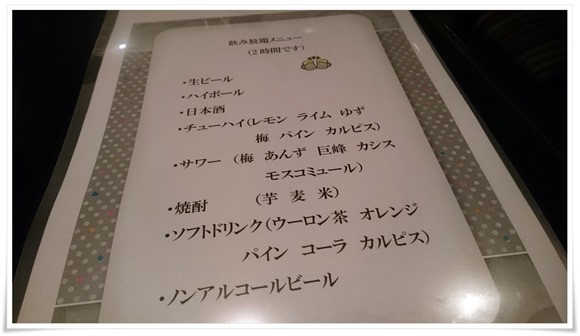 飲み放題メニュー
(2時間です)
・生ビール
・ハイボール
・日本酒
・チューハイ(レモン ライム ゆず
梅 パイン カルピス)
・サワー (梅 あんず 巨峰 カシス
モスコミュール)
・焼酎 (芋 麦 米)
・ソフトドリンク(ウーロン茶 オレンジ
パイン コーラ カルピス)
・ノンアルコールビール